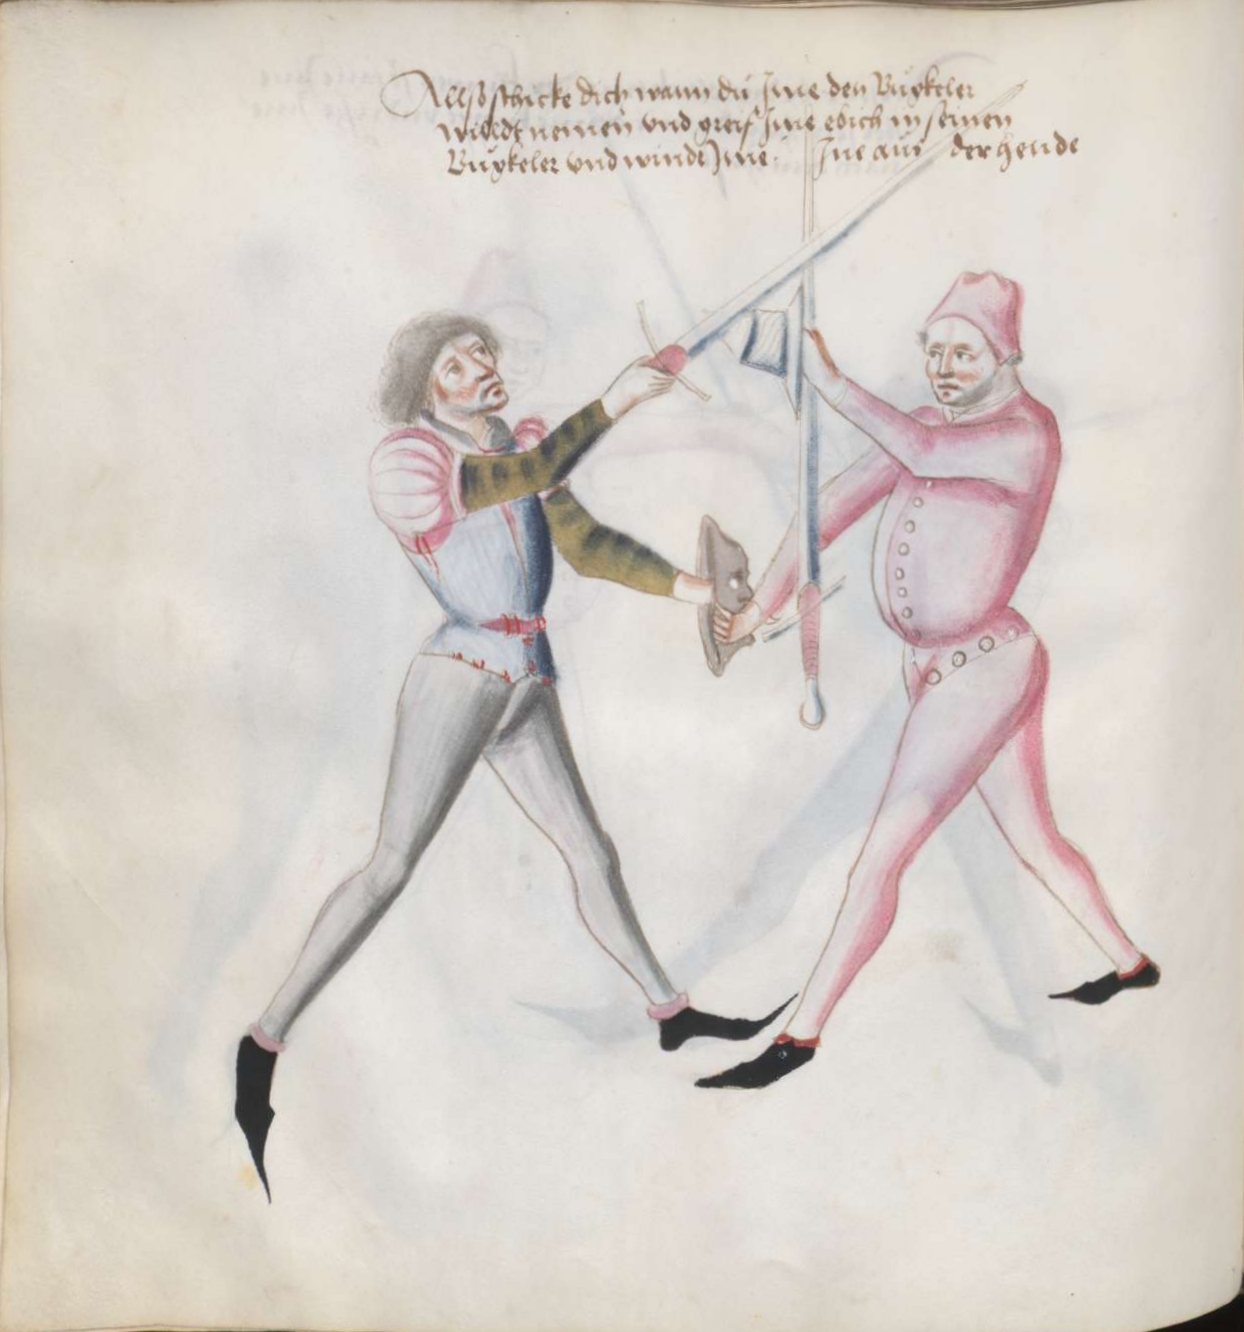 Allso schicke dich wann dú Jme den Búgkeler
wielldt nemen vnd greif Jme ebich in seinen
Búgkeler vnd windt Jme. Jne aus der hende